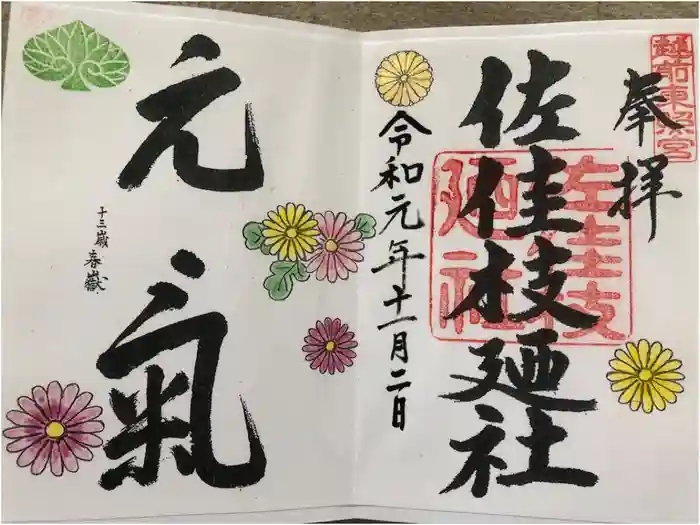 越前東照宮
奉拝
佐佳枝廼社
佐佳枝
廼社
令和元年十一月二日
元氣
十三歳
春嶽